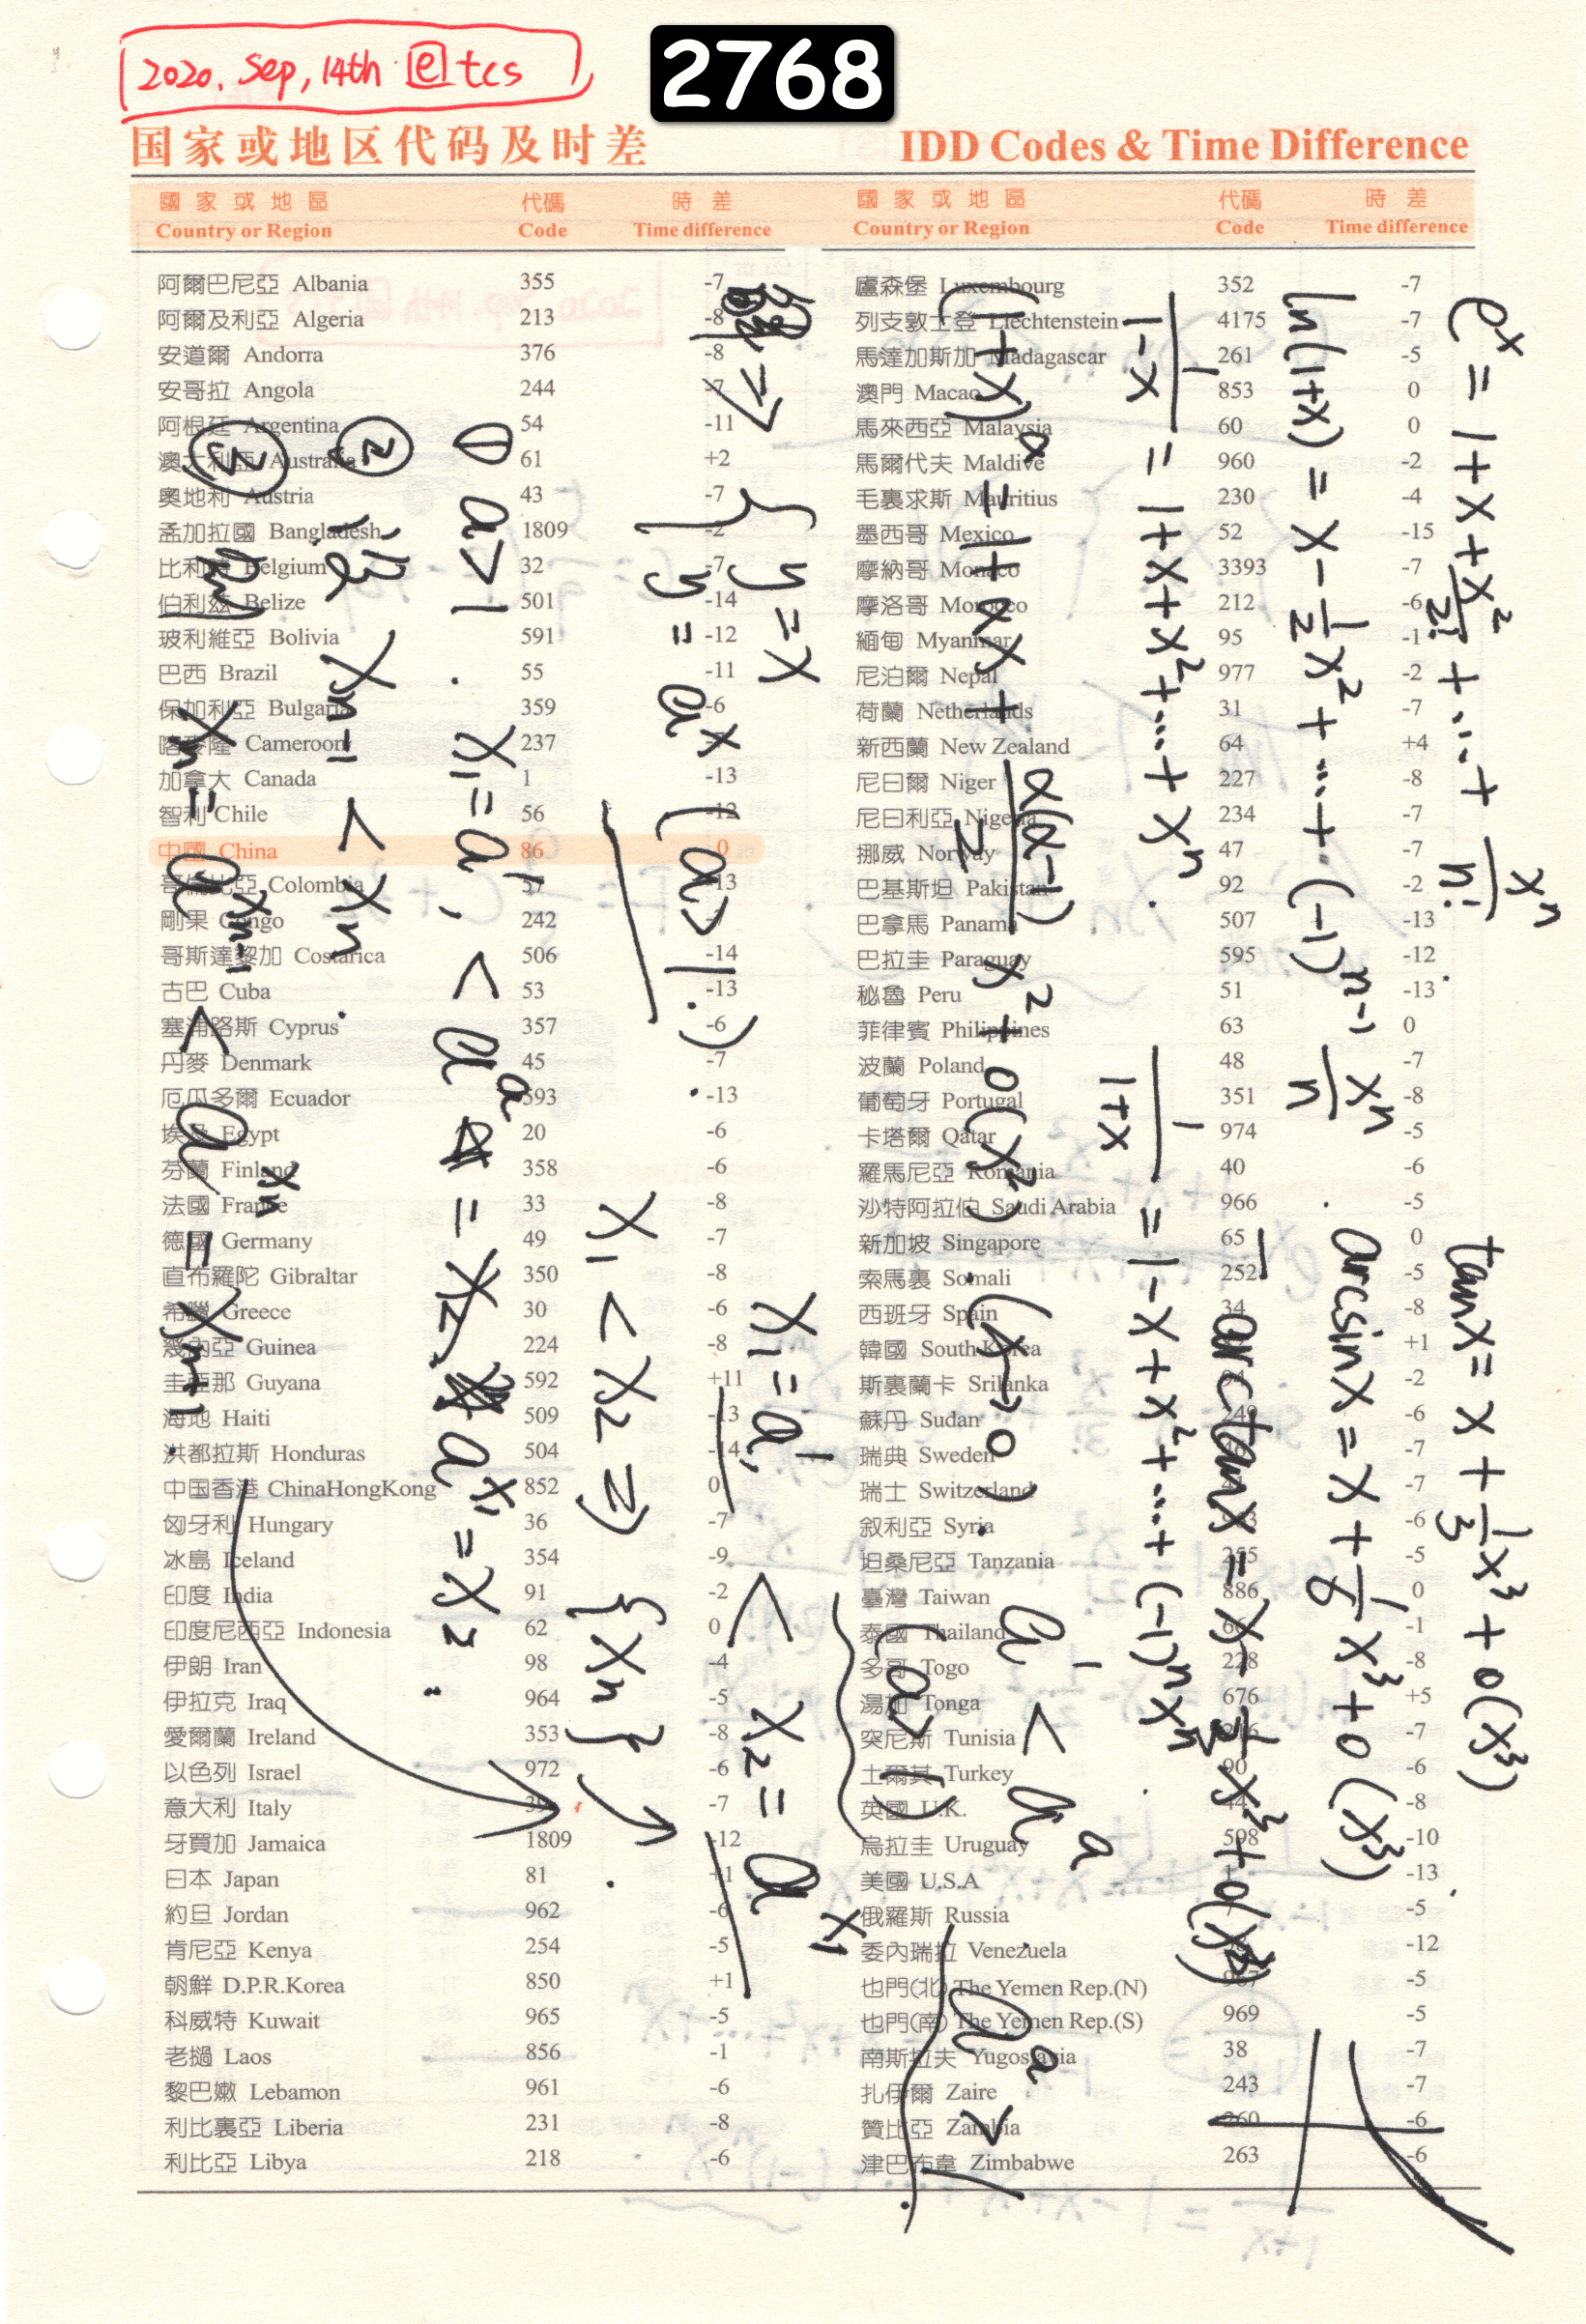 2020. Sep, 14th @tcs
2768
国家或地区代码及时差
IDD Codes & Time Difference
國家或地區 代碼 時差
Country or Region Code Time difference
阿爾巴尼亞 Albania 355 -7
阿爾及利亞 Algeria 213 -8
安道爾 Andorra 376 -8
安哥拉 Angola 244 -7
阿根廷 Argentina 54 -11
澳大利亞 Australia 61 +2
奧地利 Austria 43 -7
孟加拉國 Bangladesh 1809 -2
比利時 Belgium 32 -7
伯利兹 Belize 501 -14
玻利維亞 Bolivia 591 -12
巴西 Brazil 55 -11
保加利亞 Bulgaria 359 -6
喀麥隆 Cameroon 237
加拿大 Canada 1 -13
智利 Chile 56 -12
中國 China 86 0
哥倫比亞 Colombia 57 -13
剛果 Congo 242
哥斯達黎加 Costarica 506 -14
古巴 Cuba 53 -13
塞浦路斯 Cyprus 357 -6
丹麥 Denmark 45 -7
厄瓜多爾 Ecuador 593 -13
埃及 Egypt 20 -6
芬蘭 Finland 358 -6
法國 France 33 -8
德國 Germany 49 -7
直布羅陀 Gibraltar 350 -8
希臘 Greece 30 -6
幾內亞 Guinea 224 -8
圭亞那 Guyana 592 +11
海地 Haiti 509 -13
洪都拉斯 Honduras 504 -14
中国香港 ChinaHongKong 852 0
匈牙利 Hungary 36 -7
冰島 Iceland 354 -9
印度 India 91 -2
印度尼西亞 Indonesia 62 0
伊朗 Iran 98 -4
伊拉克 Iraq 964 -5
愛爾蘭 Ireland 353 -8
以色列 Israel 972 -6
意大利 Italy -7
牙買加 Jamaica 1809 -12
日本 Japan 81 +1
約旦 Jordan 962 -6
肯尼亞 Kenya 254 -5
朝鮮 D.P.R.Korea 850 +1
科威特 Kuwait 965 -5
老撾 Laos 856 -1
黎巴嫩 Lebamon 961 -6
利比裏亞 Liberia 231 -8
利比亞 Libya 218 -6
國家或地區 代碼 時差
Country or Region Code Time difference
盧森堡 Luxembourg 352 -7
列支敦士登 Liechtenstein 4175 -7
馬達加斯加 Madagascar 261 -5
澳門 Macao 853 0
馬來西亞 Malaysia 60 0
馬爾代夫 Maldive 960 -2
毛裏求斯 Mauritius 230 -4
墨西哥 Mexico 52 -15
摩納哥 Monaco 3393 -7
摩洛哥 Morocco 212 -6
緬甸 Myanmar 95 -1
尼泊爾 Nepal 977 -2
荷蘭 Netherlands 31 -7
新西蘭 New Zealand 64 +4
尼日爾 Niger 227 -8
尼日利亞 Nigeria 234 -7
挪威 Norway 47 -7
巴基斯坦 Pakistan 92 -2
巴拿馬 Panama 507 -13
巴拉圭 Paraguay 595 -12
秘魯 Peru 51 -13
菲律賓 Philippines 63 0
波蘭 Poland 48 -7
葡萄牙 Portugal 351 -8
卡塔爾 Qatar 974 -5
羅馬尼亞 Romania 40 -6
沙特阿拉伯 Saudi Arabia 966 -5
新加坡 Singapore 65 0
索馬裏 Somali 252 -5
西班牙 Spain 34 -8
韓國 South Korea +1
斯裏蘭卡 Srilanka -2
蘇丹 Sudan 249 -6
瑞典 Sweden -7
瑞士 Switzerland -7
叙利亞 Syria -6
坦桑尼亞 Tanzania 255 -5
臺灣 Taiwan 886 0
泰國 Thailand -1
多哥 Togo 228 -8
湯加 Tonga 676 +5
突尼斯 Tunisia -7
土爾其 Turkey 90 -6
英國 U.K. 44 -8
烏拉圭 Uruguay 598 -10
美國 U.S.A -13
俄羅斯 Russia -5
委內瑞拉 Venezuela -12
也門(北) The Yemen Rep.(N) 967 -5
也門(南) The Yemen Rep.(S) 969 -5
南斯拉夫 Yugoslavia 38 -7
扎伊爾 Zaire 243 -7
贊比亞 Zambia 260 -6
津巴布韋 Zimbabwe 263 -6
e^x = 1+x+x²/2!+…+x^n/n!. tanx = x+1/3x³+o(x³).
ln(1+x) = x-1/2x²+…+(-1)^(n-1) x^n/n. arcsinx = x+1/6x³+o(x³)
arctanx = x-1/3x³+o(x³)
1/(1-x) = 1+x+x²+…+x^n. 1/(1+x) = 1-x+x²+…+(-1)^n x^n.
(1+x)^α = 1+αx+α(α-1)/2 x²+o(x²). (x→0). a^1<a^a. a^a>1
(a>1)
解⇒ {y=x y=a^x (a>1.). x₁=a^1, < x₂=a^x₁
x₁<x₂ ⇒ {xn} ↗.
① a>1. x₁=a^1, < a^a = x₂, a^x₁=x₂.
② 设 xn-1 < xn.
③ 则 xn = a^xn-1 < a^xn = xn+1.